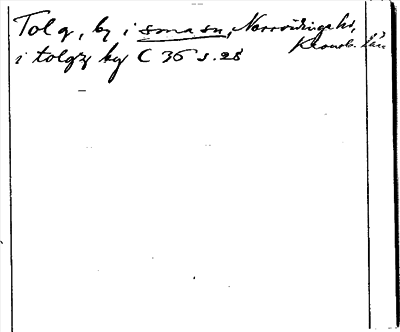 Tolg, by i småsn, Norrvidinge hd,
Kronob. län
i tolgz by C 36 s. 28